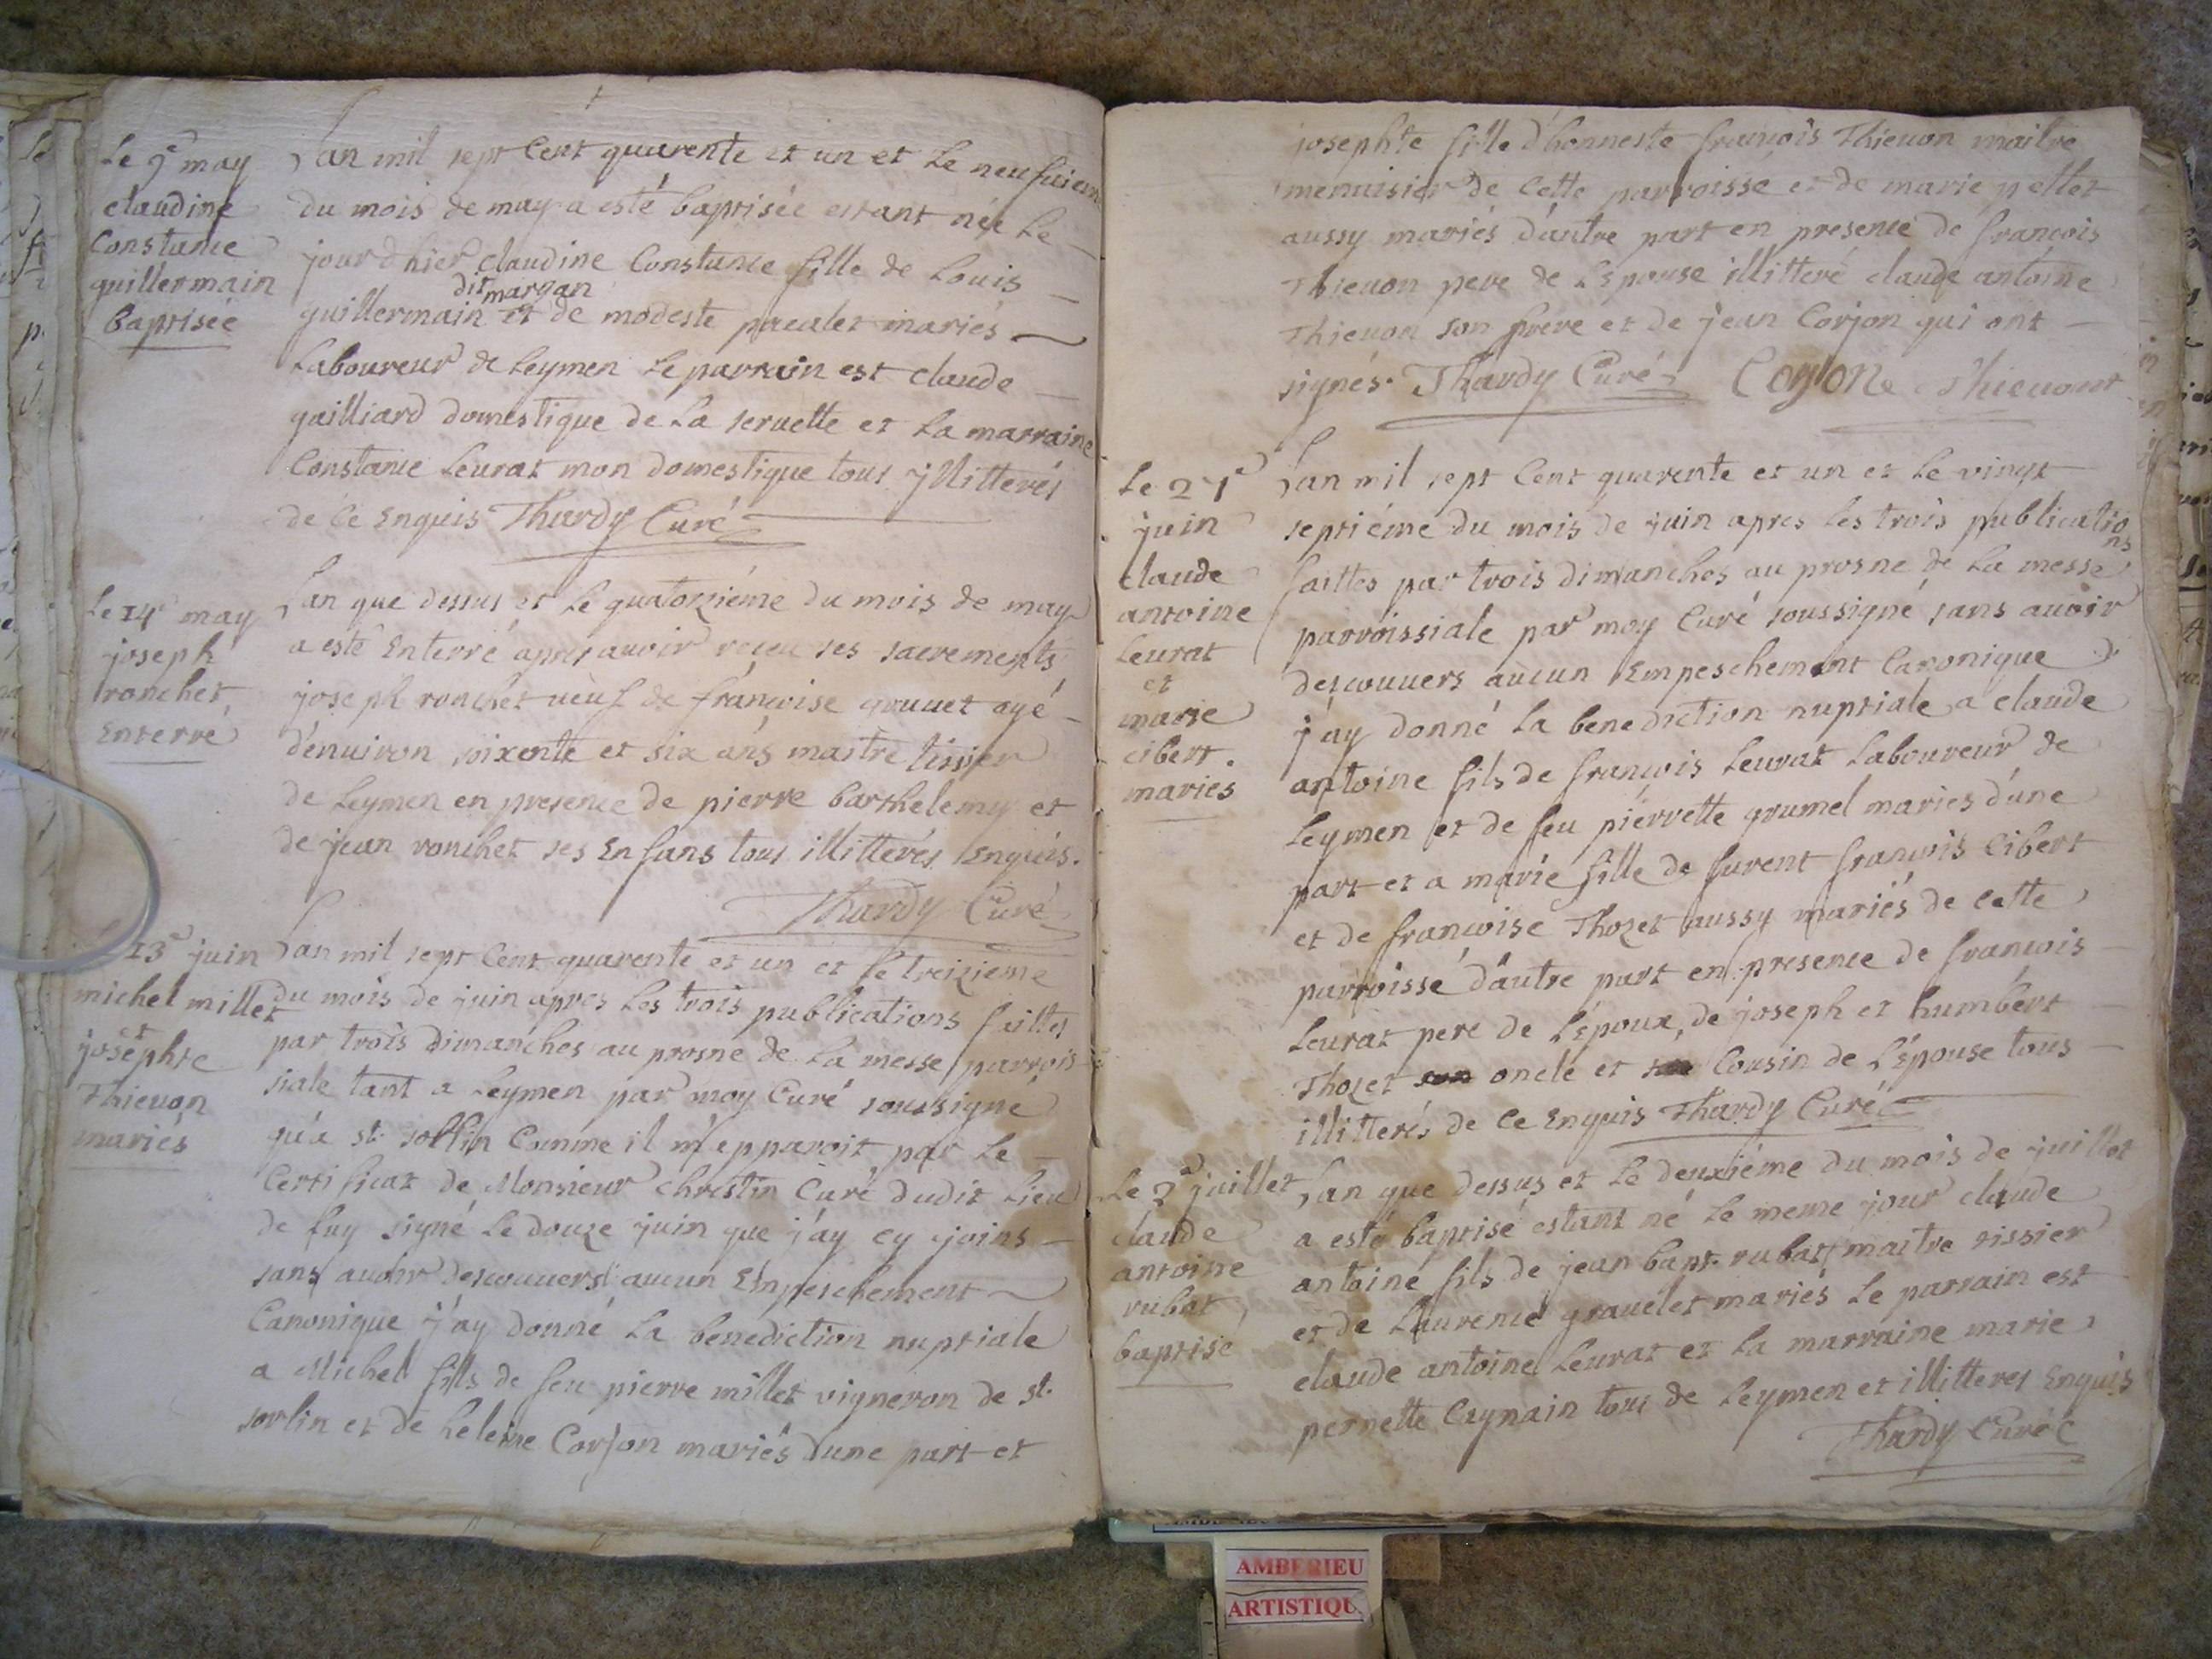 Le 9e may
claudine
Constance
guillermain
Baptisée
Lan mil sept Cent quarente et un et Le neufuiem
du mois de may a esté baptisée estant née Le
jour dhier claudine Constance fille de Louis
dit margan
guillermain et de modeste pacalet mariés
Laboureur de Leymen Le parrain est claude
gailliard domestique de La seruette et La marraine
Constance Leurat mon domestique tous jllitterés
de Ce Enquis Thardy Curé
Le 14e may
joseph
ronchet
Enterré
Lan que dessus et Le quatorziéme du mois de may
a esté Enterré apres auoir reçeu ses sacrements
joseph ronchet ueuf de françoise gouuet agé
d'enuiron soixente et six ans maitre tissier
de Leymen en presence de pierre barthelemy et
de jean ronchet ses Enfans tous illitterés Enquis.
Thardy Curé
13e juin
michel millet
et
josephte
Thieuon
mariés
Lan mil sept Cent quarente et un et Le treizieme
du mois de juin apres Les trois publications faittes
par trois dimanches au prosne de La messe parrois
siale tant a Leymen par moy Curé soussigné
qu'a st. sorlin Comme il m'epparoit par Le
Certificat de Monsieur Christin Curé dudit Lieu
de Luy signé Le douze juin que j'ay cy joins
sans auoir descouuers aucun Empeschement
Canonique j'ay donné La benediction nuptiale
a Michel fils de feu pierre millet vigneron de st.
sorlin et de heleine Corjon mariés dune part et
josephte fille d'honneste françois Thieuon maitre
menuisier de Cette parroisse et de marie pellet
aussy mariés d'autre part en presence de françois
Thieuon pere de L'Epouse illitteré claude antoine
Thieuon son frere et de jean Corjon qui ont
signés. Thardy Curé Corjon Thieuont
Le 27e
juin
claude
antoine
Leurat
et
marie
cibert.
mariés
Lan mil sept Cent quarente et un et Le vingt
septiéme du mois de juin apres Les trois publicatio
ns
faittes par trois dimanches au prosne de La messe
parroissiale par moy Curé soussigné sans auoir
descouuers aucun Empeschement Canonique
j'ay donné La benediction nuptiale a claude
antoine fils de françois Leurat Laboureur de
Leymen et de feu pierrette grumel mariés d'une
part et a marie fille de furent françois Cibert
et de françoise Thozet aussy mariés de Cette
parroisse d'autre part en presence de françois
Leurat pere de L'époux, de joseph et humbert
Thozet oncle et Cousin de L'épouse tous
illitterés de Ce Enquis Thardy Curé
Le 2e juillet
claude
antoine
rubat
baptisé
Lan que dessus et Le deuxiéme du mois de juillet
a esté baptisé estant né Le meme jour claude
antoine fils de jean bapt. rubat maitre tissier
et de Laurence grauelet mariés Le parrain est
claude antoine Leurat et La marraine marie
pernette Caynain tous de Leymen et illitteres Enquis
Thardy Curé
AMBERIEU
ARTISTIQU